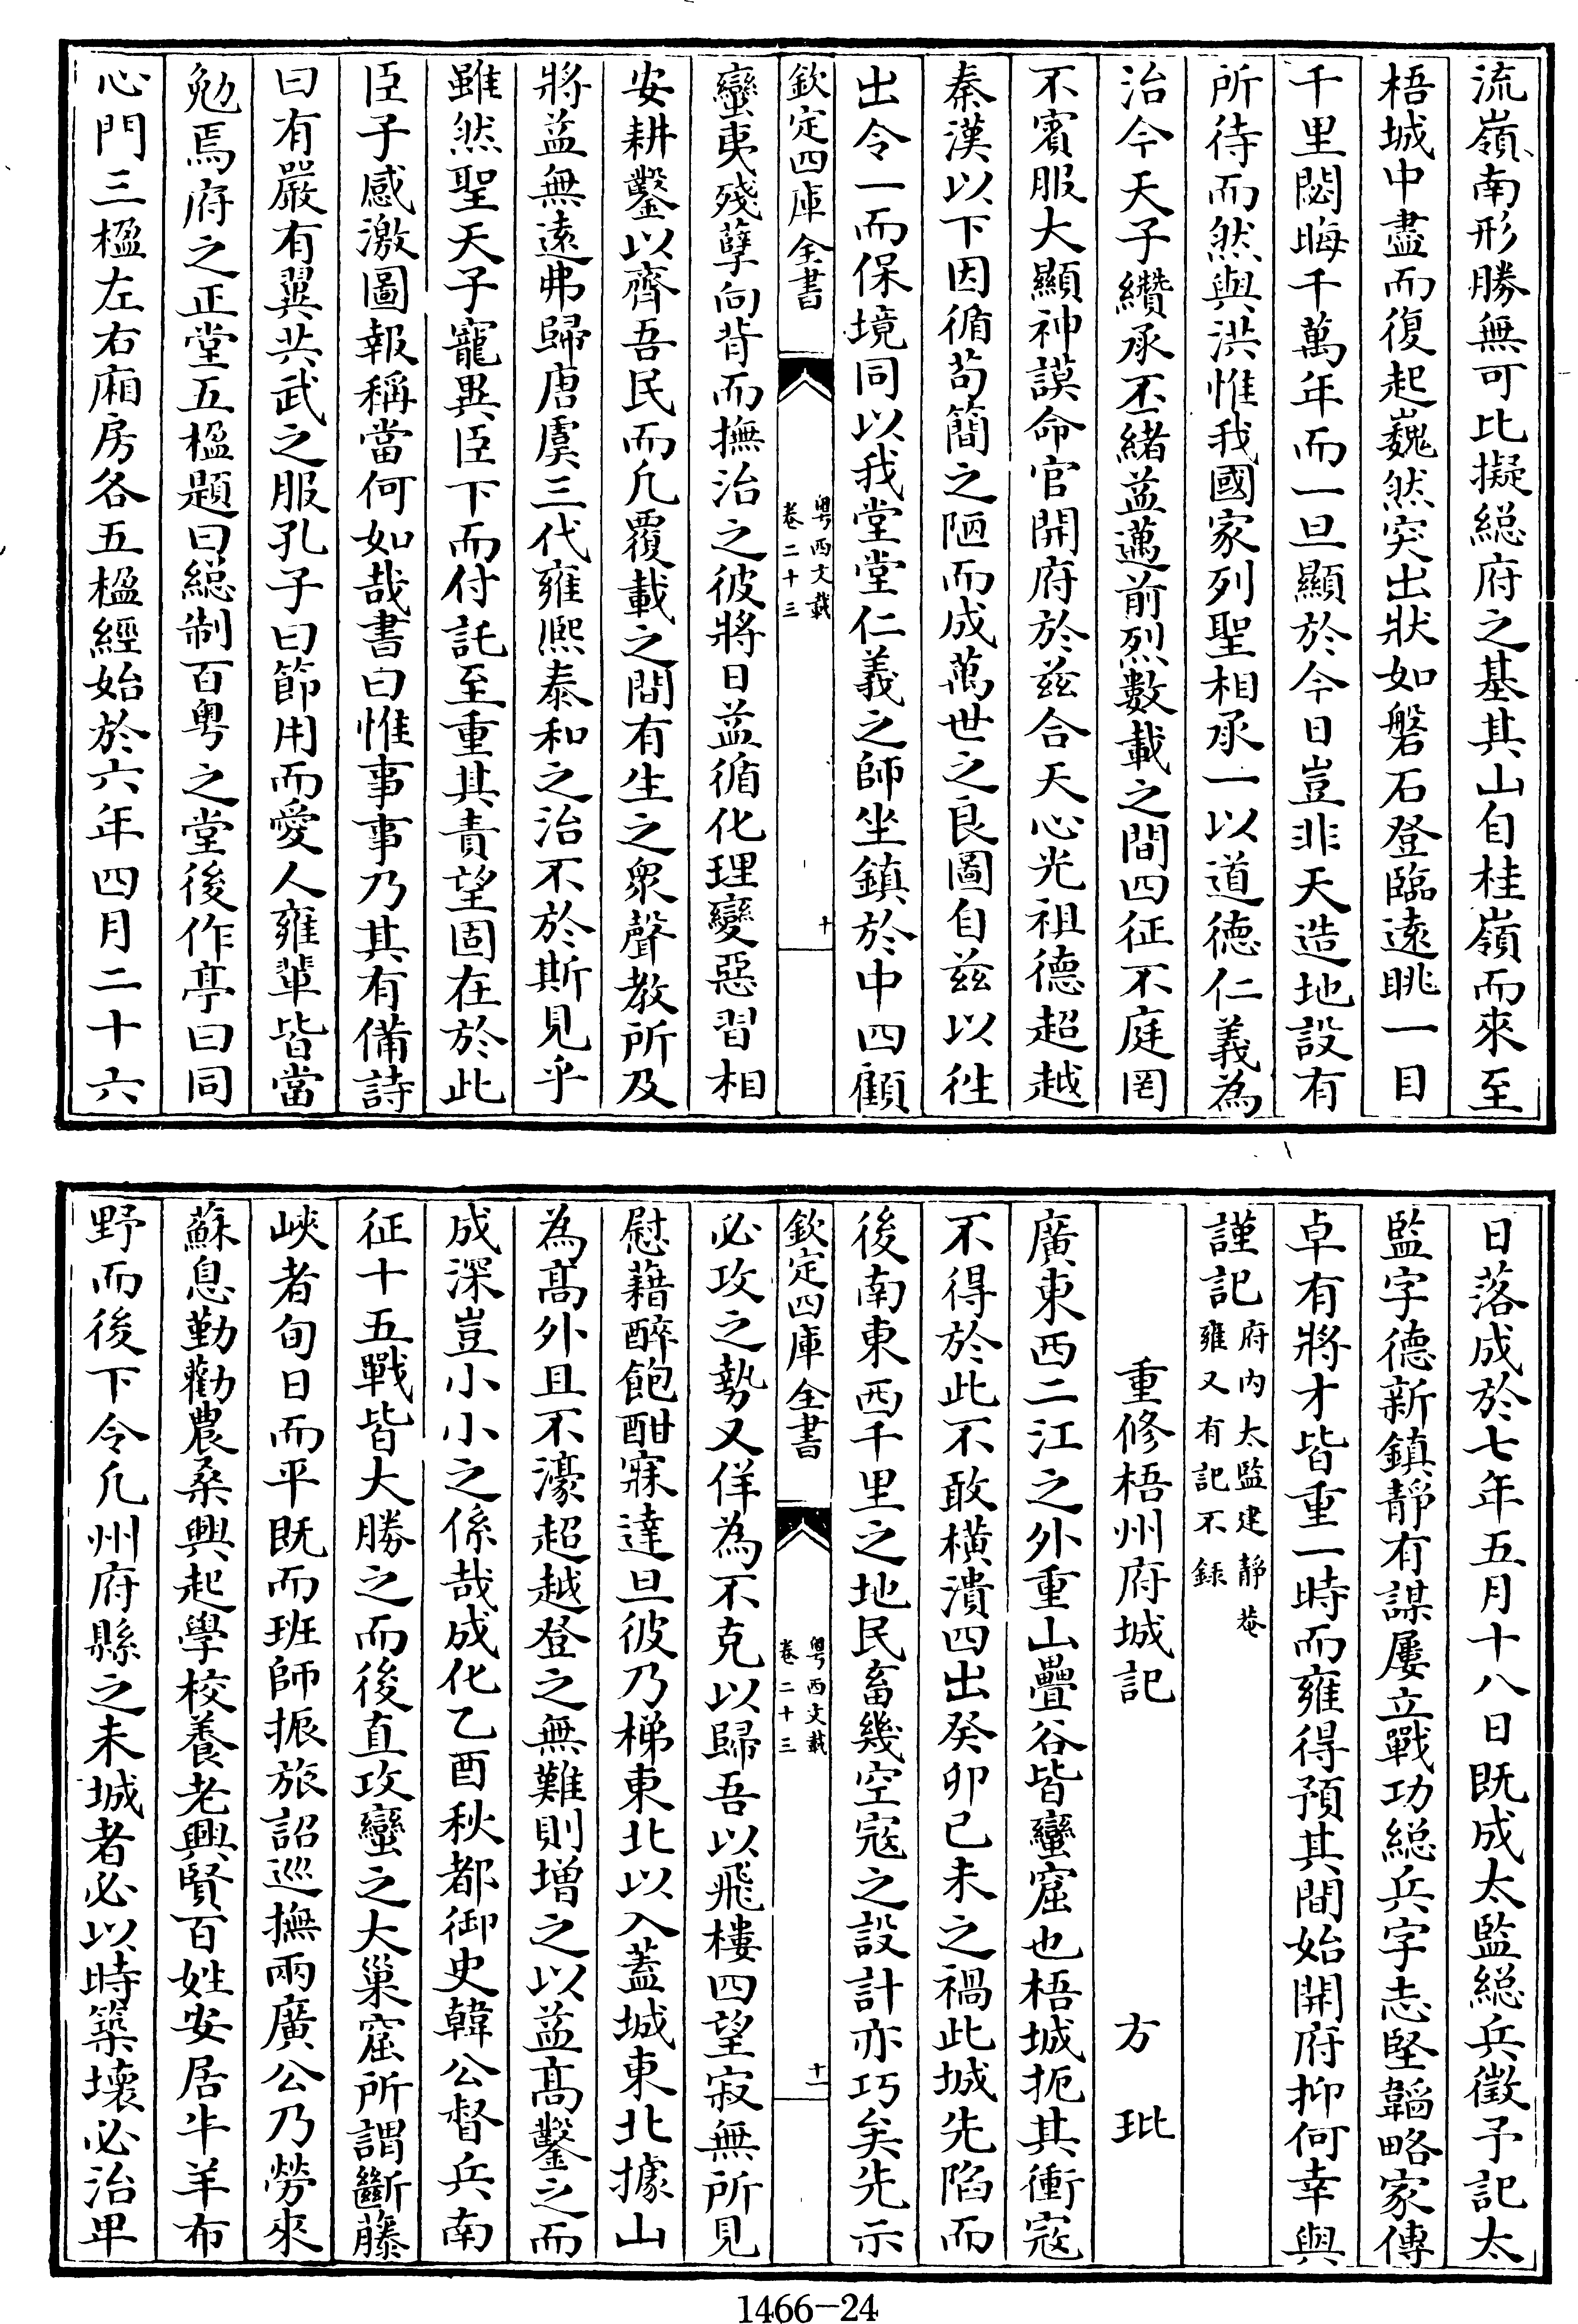 流嶺南形勝無可比擬総府之基其山自桂嶺而來至
梧城中盡而復起巍然突出狀如磐石登臨遠眺一目
千里閟晦千萬年而一旦顯於今日豈非天造地設有
所待而然與洪惟我國家列聖相承一以道德仁義為
治今天子纘承丕緒益邁前烈數載之間四征不庭罔
不賓服大顯神謨命官開府於兹合天心光祖德超越
秦漢以下因循苟簡之陋而成萬世之良圖自兹以徃
出令一而保境同以我堂堂仁義之師坐鎮於中四顧
欽定四庫全書
粤西文載
卷二十三
十
蠻夷殘孽向背而撫治之彼將日益循化理變惡習相
安耕鑿以齊吾民而凡覆載之間有生之衆聲教所及
將益無遠弗歸唐虞三代雍熙泰和之治不於斯見乎
雖然聖天子寵異臣下而付託至重其責望固在於此
臣子感激圖報稱當何如哉書曰惟事事乃其有備詩
曰有嚴有翼共武之服孔子曰節用而愛人雍輩皆當
勉焉府之正堂五楹題曰総制百粤之堂後作亭曰同
心門三楹左右廂房各五楹經始於六年四月二十六
日落成於七年五月十八日既成太監総兵徵予記太
監字德新鎮靜有謀屢立戰功総兵字志堅韜略家傳
卓有將才皆重一時而雍得預其間始開府抑何幸與
謹記府内太監建靜菴
雍又有記不録
重修梧州府城記 方玭
廣東西二江之外重山疊谷皆蠻窟也梧城扼其衝寇
不得於此不敢橫潰四出癸卯已未之禍此城先陷而
後南東西千里之地民畜幾空寇之設計亦巧矣先示
欽定四庫全書
粤西文載
卷二十三
十一
必攻之勢又佯為不克以歸吾以飛樓四望寂無所見
慰藉醉飽酣寐達旦彼乃梯東北以入蓋城東北據山
為髙外且不濠超越登之無難則增之以益髙鑿之而
成深豈小小之係哉成化乙酉秋都御史韓公督兵南
征十五戰皆大勝之而後直攻蠻之大巢窟所謂斷藤
峽者旬日而平既而班師振旅詔巡撫兩廣公乃勞來
蘇息勤勸農桑興起學校養老興賢百姓安居牛羊布
野而後下令凡州府縣之未城者必以時築壞必治卑
1466-24